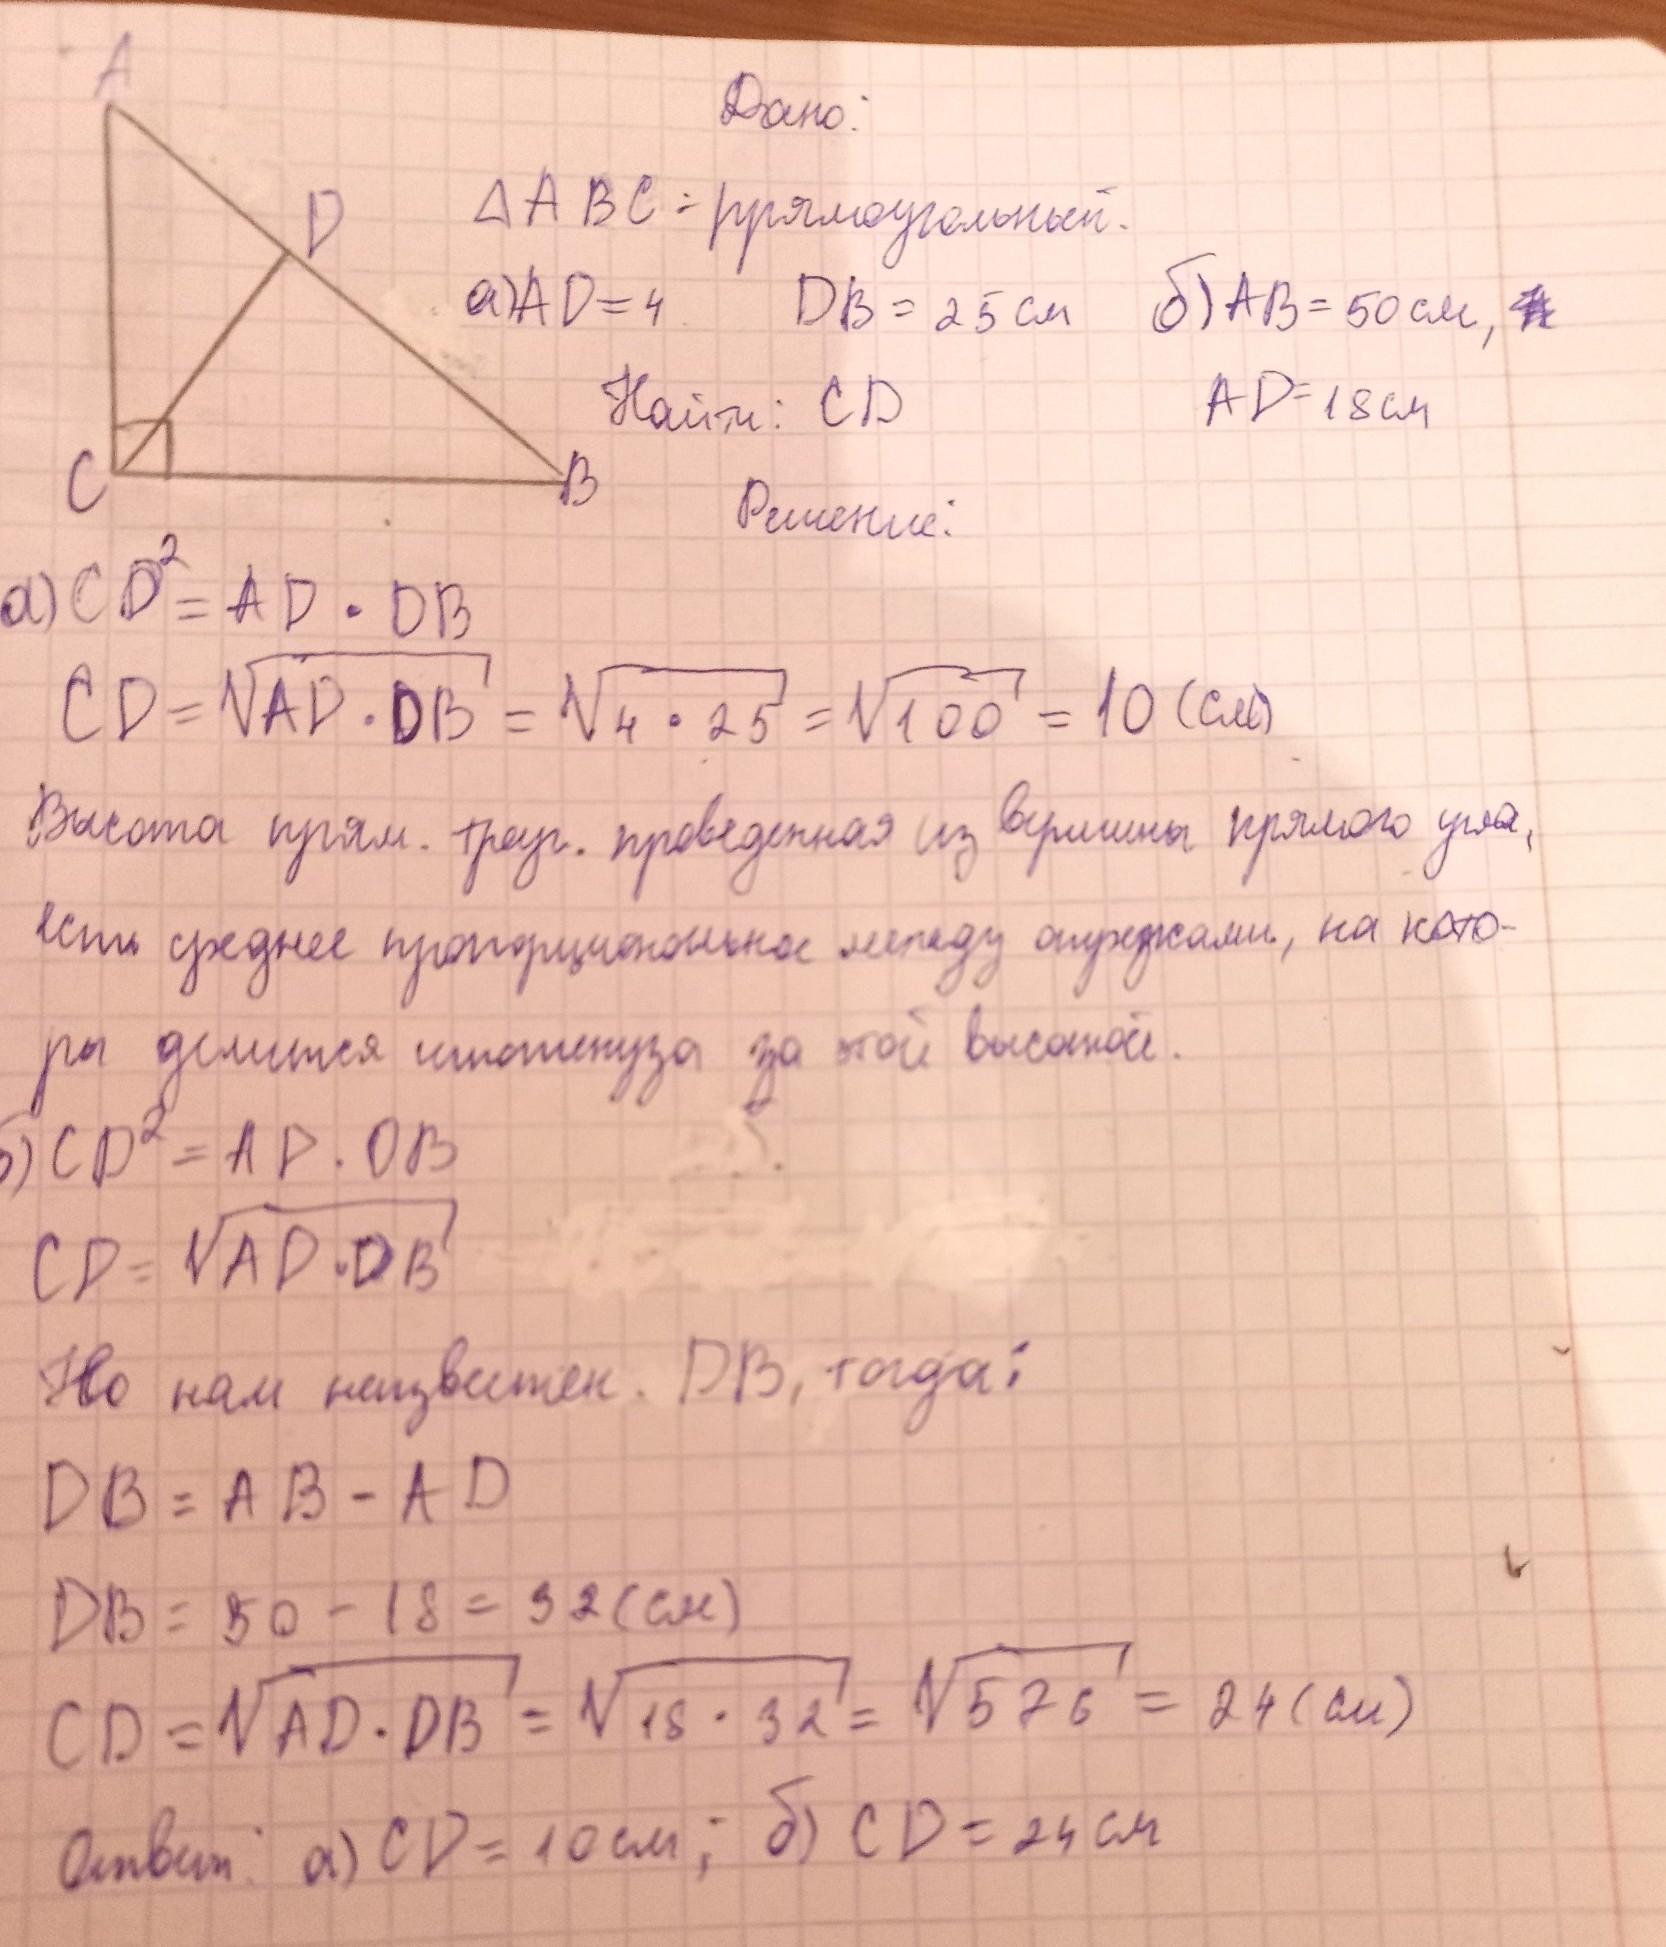 A
D
C
B
Дано:
△ABC - прямоугольный.
а) AD = 4 DB = 25 см б) AB = 50 см,
Найти: CD AD = 18 см
Решение:
а) CD² = AD · DB
CD = √AD · DB = √4 · 25 = √100 = 10 (см)
Высота прям. треуг. проведенная из вершины прямого угла,
есть среднее пропорциональное между отрезками, на кото-
ры делится гипотенуза за этой высотой.
б) CD² = AD · DB
CD = √AD · DB
Но нам неизвестен. DB, тогда:
DB = AB - AD
DB = 50 - 18 = 32 (см)
CD = √AD · DB = √18 · 32 = √576 = 24 (см)
Ответ: а) CD = 10 см; б) CD = 24 см